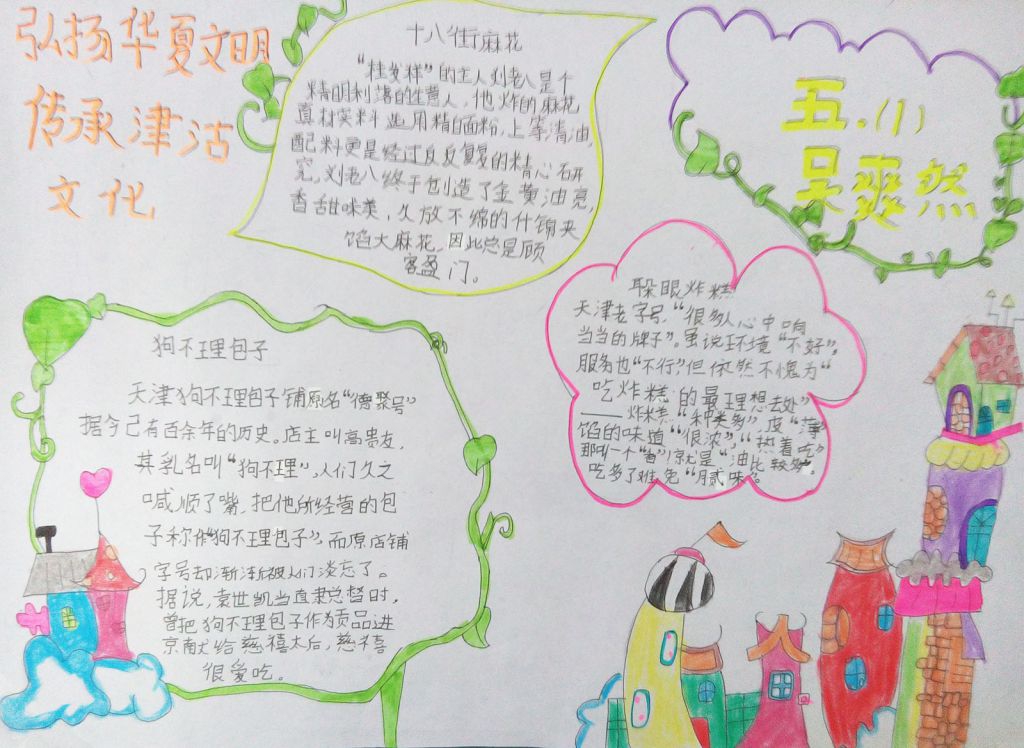 弘扬华夏文明
传承津沽
文化
十八街麻花
"桂发祥"的主人刘老八是个
精明利落的生意人,他炸的麻花
真材实料选用精白面粉,上等清油,
配料更是经过反反复复的精心研
究,刘老八终于创造了金黄油亮,
香甜味美,久放不绵的什锦夹
馅大麻花,因此总是顾
客盈门。
五.(1)
吴爽然
狗不理包子
天津狗不理包子铺原名"德聚号"
据今已有百余年的历史。店主叫高贵友,
其乳名叫"狗不理",人们久之
喊顺了嘴,把他所经营的包
子称作"狗不理包子",而原店铺
字号却渐渐被人们淡忘了。
据说,袁世凯当直隶总督时,
曾把狗不理包子作为贡品进
京献给慈禧太后,慈禧
很爱吃。
躲眼炸糕
天津老字号,"很多人心中响
当当的牌子"。虽说环境"不好",
服务也"不行"但依然不愧为"
吃炸糕的最理想去处"
——炸糕"种类多",皮"薄"
馅的味道"很浓","热着吃"
那叫一个"香",就是"油比较多"。
吃多了难免"腻味"。